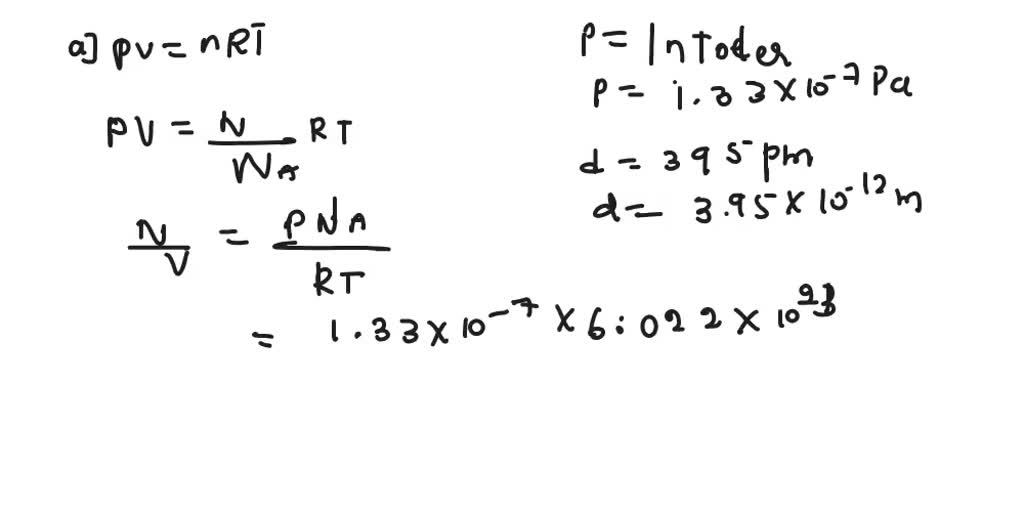 a] PV = nRT
PV = N/NA RT
N/V = PNA/RT
= 1.33 × 10⁻⁷ × 6.022 × 10²³
P = 1 n Toder
P = 1.33 × 10⁻⁷ Pa
d = 395 pm
d = 3.95 × 10⁻¹² m